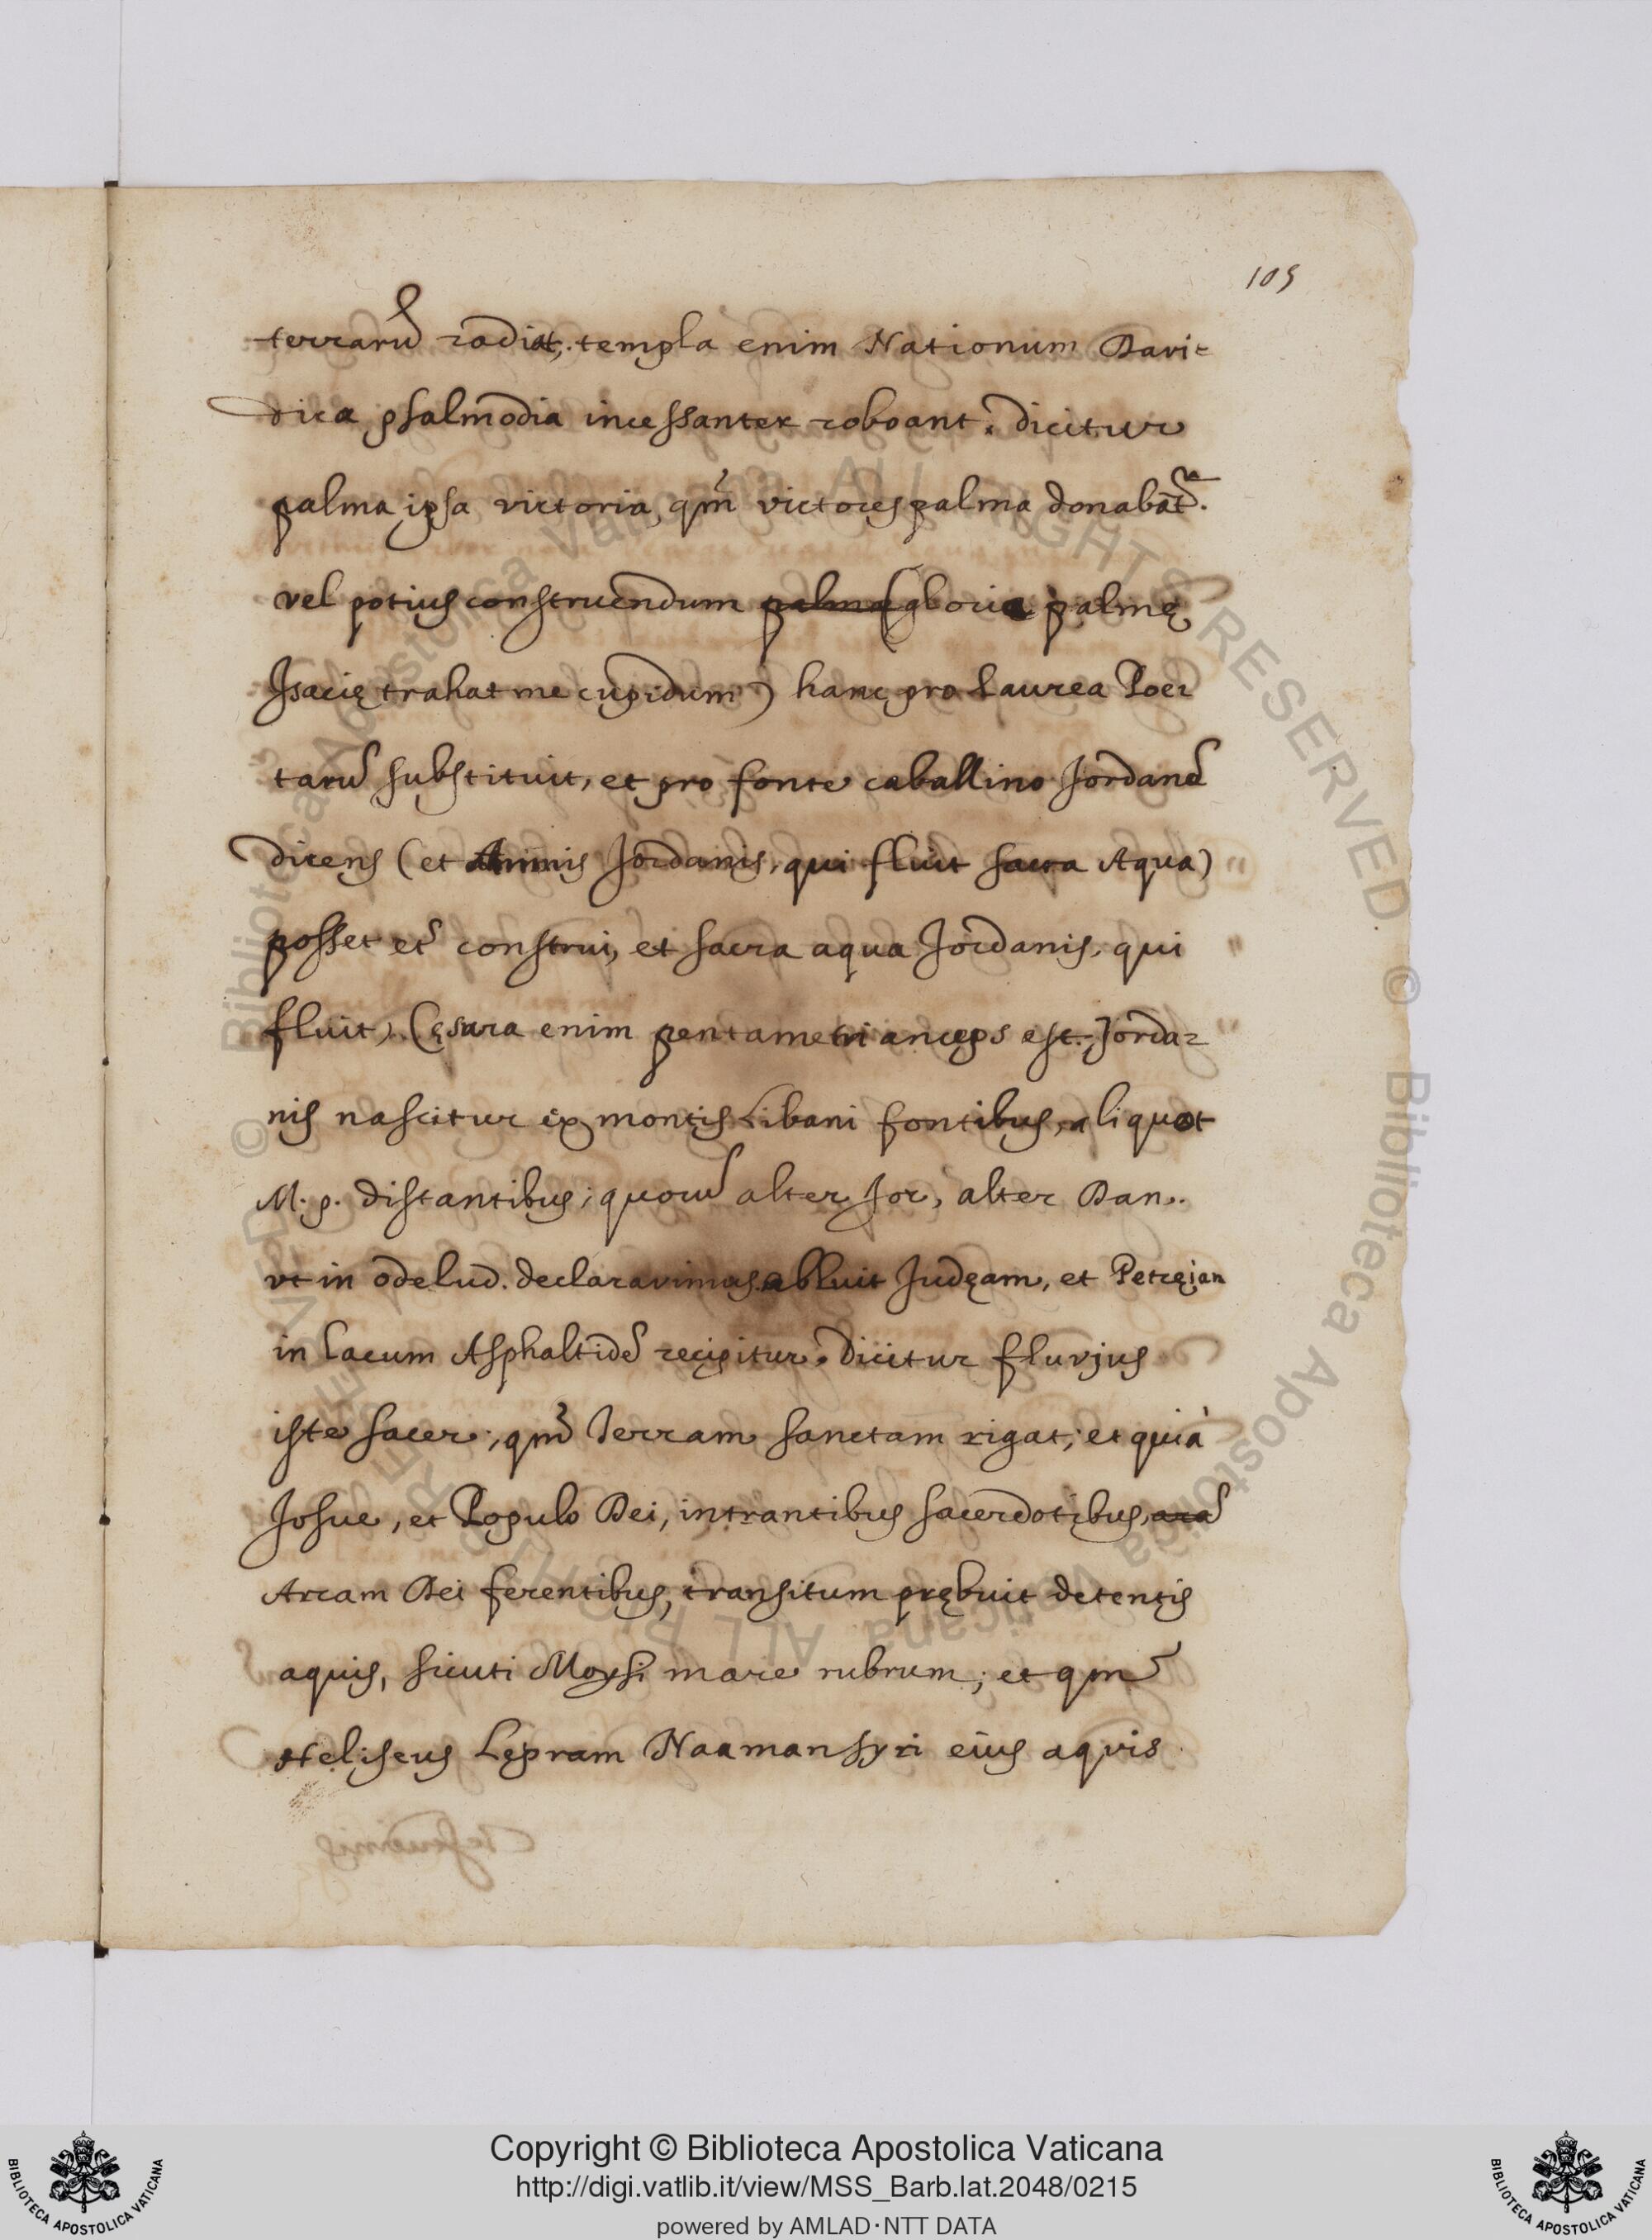 105
terrarū radiat, templa enim Nationum Davi=
dica psalmodia incessanter roboant. dicitur
palma ipsa victoria, qm̄ victores palma donabāt.
vel potius construendum palma (gloria palmę
Isacię trahat me cupidum) hanc pro Laurea Poe=
tarū substituit, et pro fonte caballino Jordanē
dicens (et Amnis Jordanis, qui fluit sacra Aqua)
posset et̄ construi, et sacra aqua Jordanis, qui
fluit) Cęsura enim pentametri anceps est. Jorda=
nis nascitur ex montis Libani fontibus, aliquot
M. p. distantibus; quorū alter Jor, alter Dan.
vt in odelud. declaravimus. abluit Judęam, et Petręian
in lacum Asphaltidē recipitur. dicitur fluvius
iste sacer, qm̄ Terram sanctam rigat; et quià
Josue, et Populo Dei, intrantibus sacerdotibus, arā
Arcam Dei ferentibus, transitum prębuit detentis
aquis, sicuti Moysi mare rubrum; et qm̄
Heliseus Lepram Naaman syri eius aqvis
© Biblioteca Apostolica Vaticana ALL RIGHTS RESERVED © Biblioteca Apostolica Vaticana ALL RIGHTS RESERVED
Copyright © Biblioteca Apostolica Vaticana
http://digi.vatlib.it/view/MSS_Barb.lat.2048/0215
powered by AMLAD·NTT DATA
BIBLIOTECA APOSTOLICA VATICANA
BIBLIOTECA APOSTOLICA VATICANA